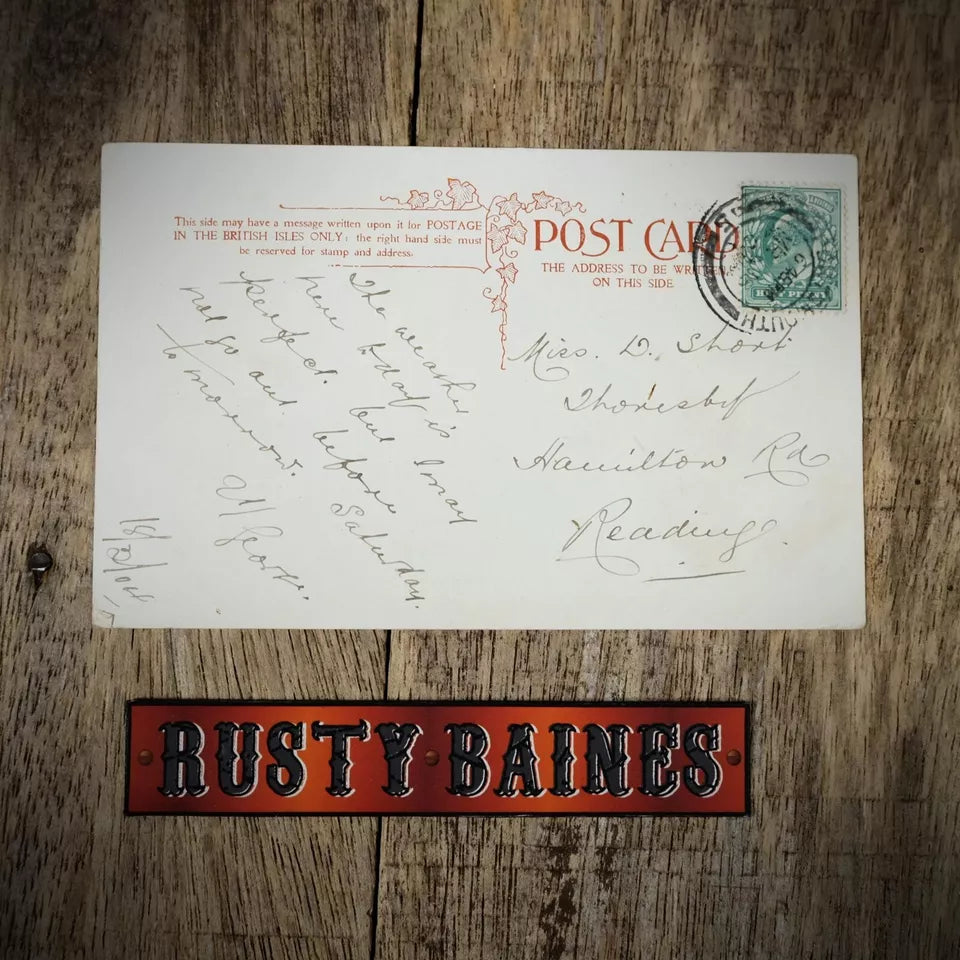 This side may have a message written upon it for POSTAGE
IN THE BRITISH ISLES ONLY: the right hand side must
be reserved for stamp and address.
POST CARD
THE ADDRESS TO BE WRITTEN
ON THIS SIDE
The weather
here today is
perfect. but I may
not go out before
to morrow. Saturday.
George.
Miss. D. Short
Thoresby
Hamilton Rd
Reading.
RUSTY BAINES